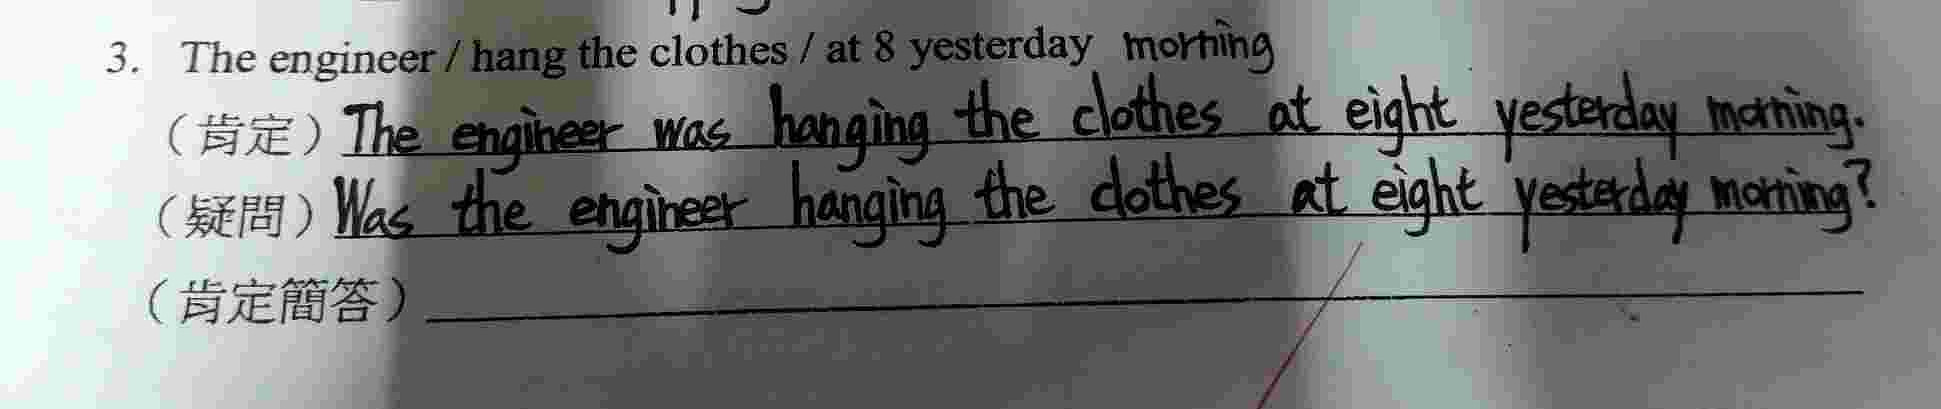 3. The engineer / hang the clothes / at 8 yesterday morning
（肯定）The engineer was hanging the clothes at eight yesterday morning.
（疑問）Was the engineer hanging the clothes at eight yesterday morning?
（肯定簡答）